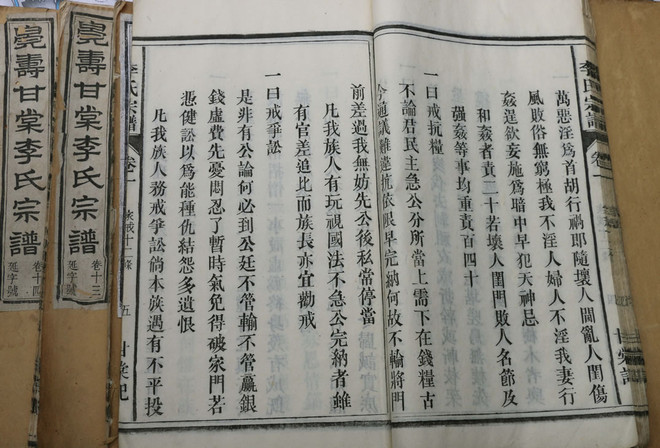 李氏宗譜
卷一
萬惡淫爲首胡行禍即隨壞人閨亂人閨傷
風敗俗無窮極我不淫人婦人不淫我妻行
姦逞欲妄施爲暗中早犯天神忌
和姦者責二十若壞人閨門敗人名節及
強姦等事均重責百四十
一曰戒抗糧
不論君民主急公分所當上需下在錢糧古
今通議難違抗依限早完納何故不輸將門
前差過我無妨先公後私當停當
凡我族人有玩視國法不急公完納者雖
有官差追比而族長亦宜勸戒
一曰戒爭訟
是非有公論何必到公廷不管輸不管贏銀
錢虛費先憂悶忍了暫時氣免得破家門若
憑健訟以爲能種仇結怨多遺恨
凡我族人務戒爭訟倘本族遇有不平投
李氏宗譜
卷一
家戒十二條
五
甘棠記
壽甘棠李氏宗譜
卷十三
延字號
壽甘棠李氏宗譜
卷十四
延字號